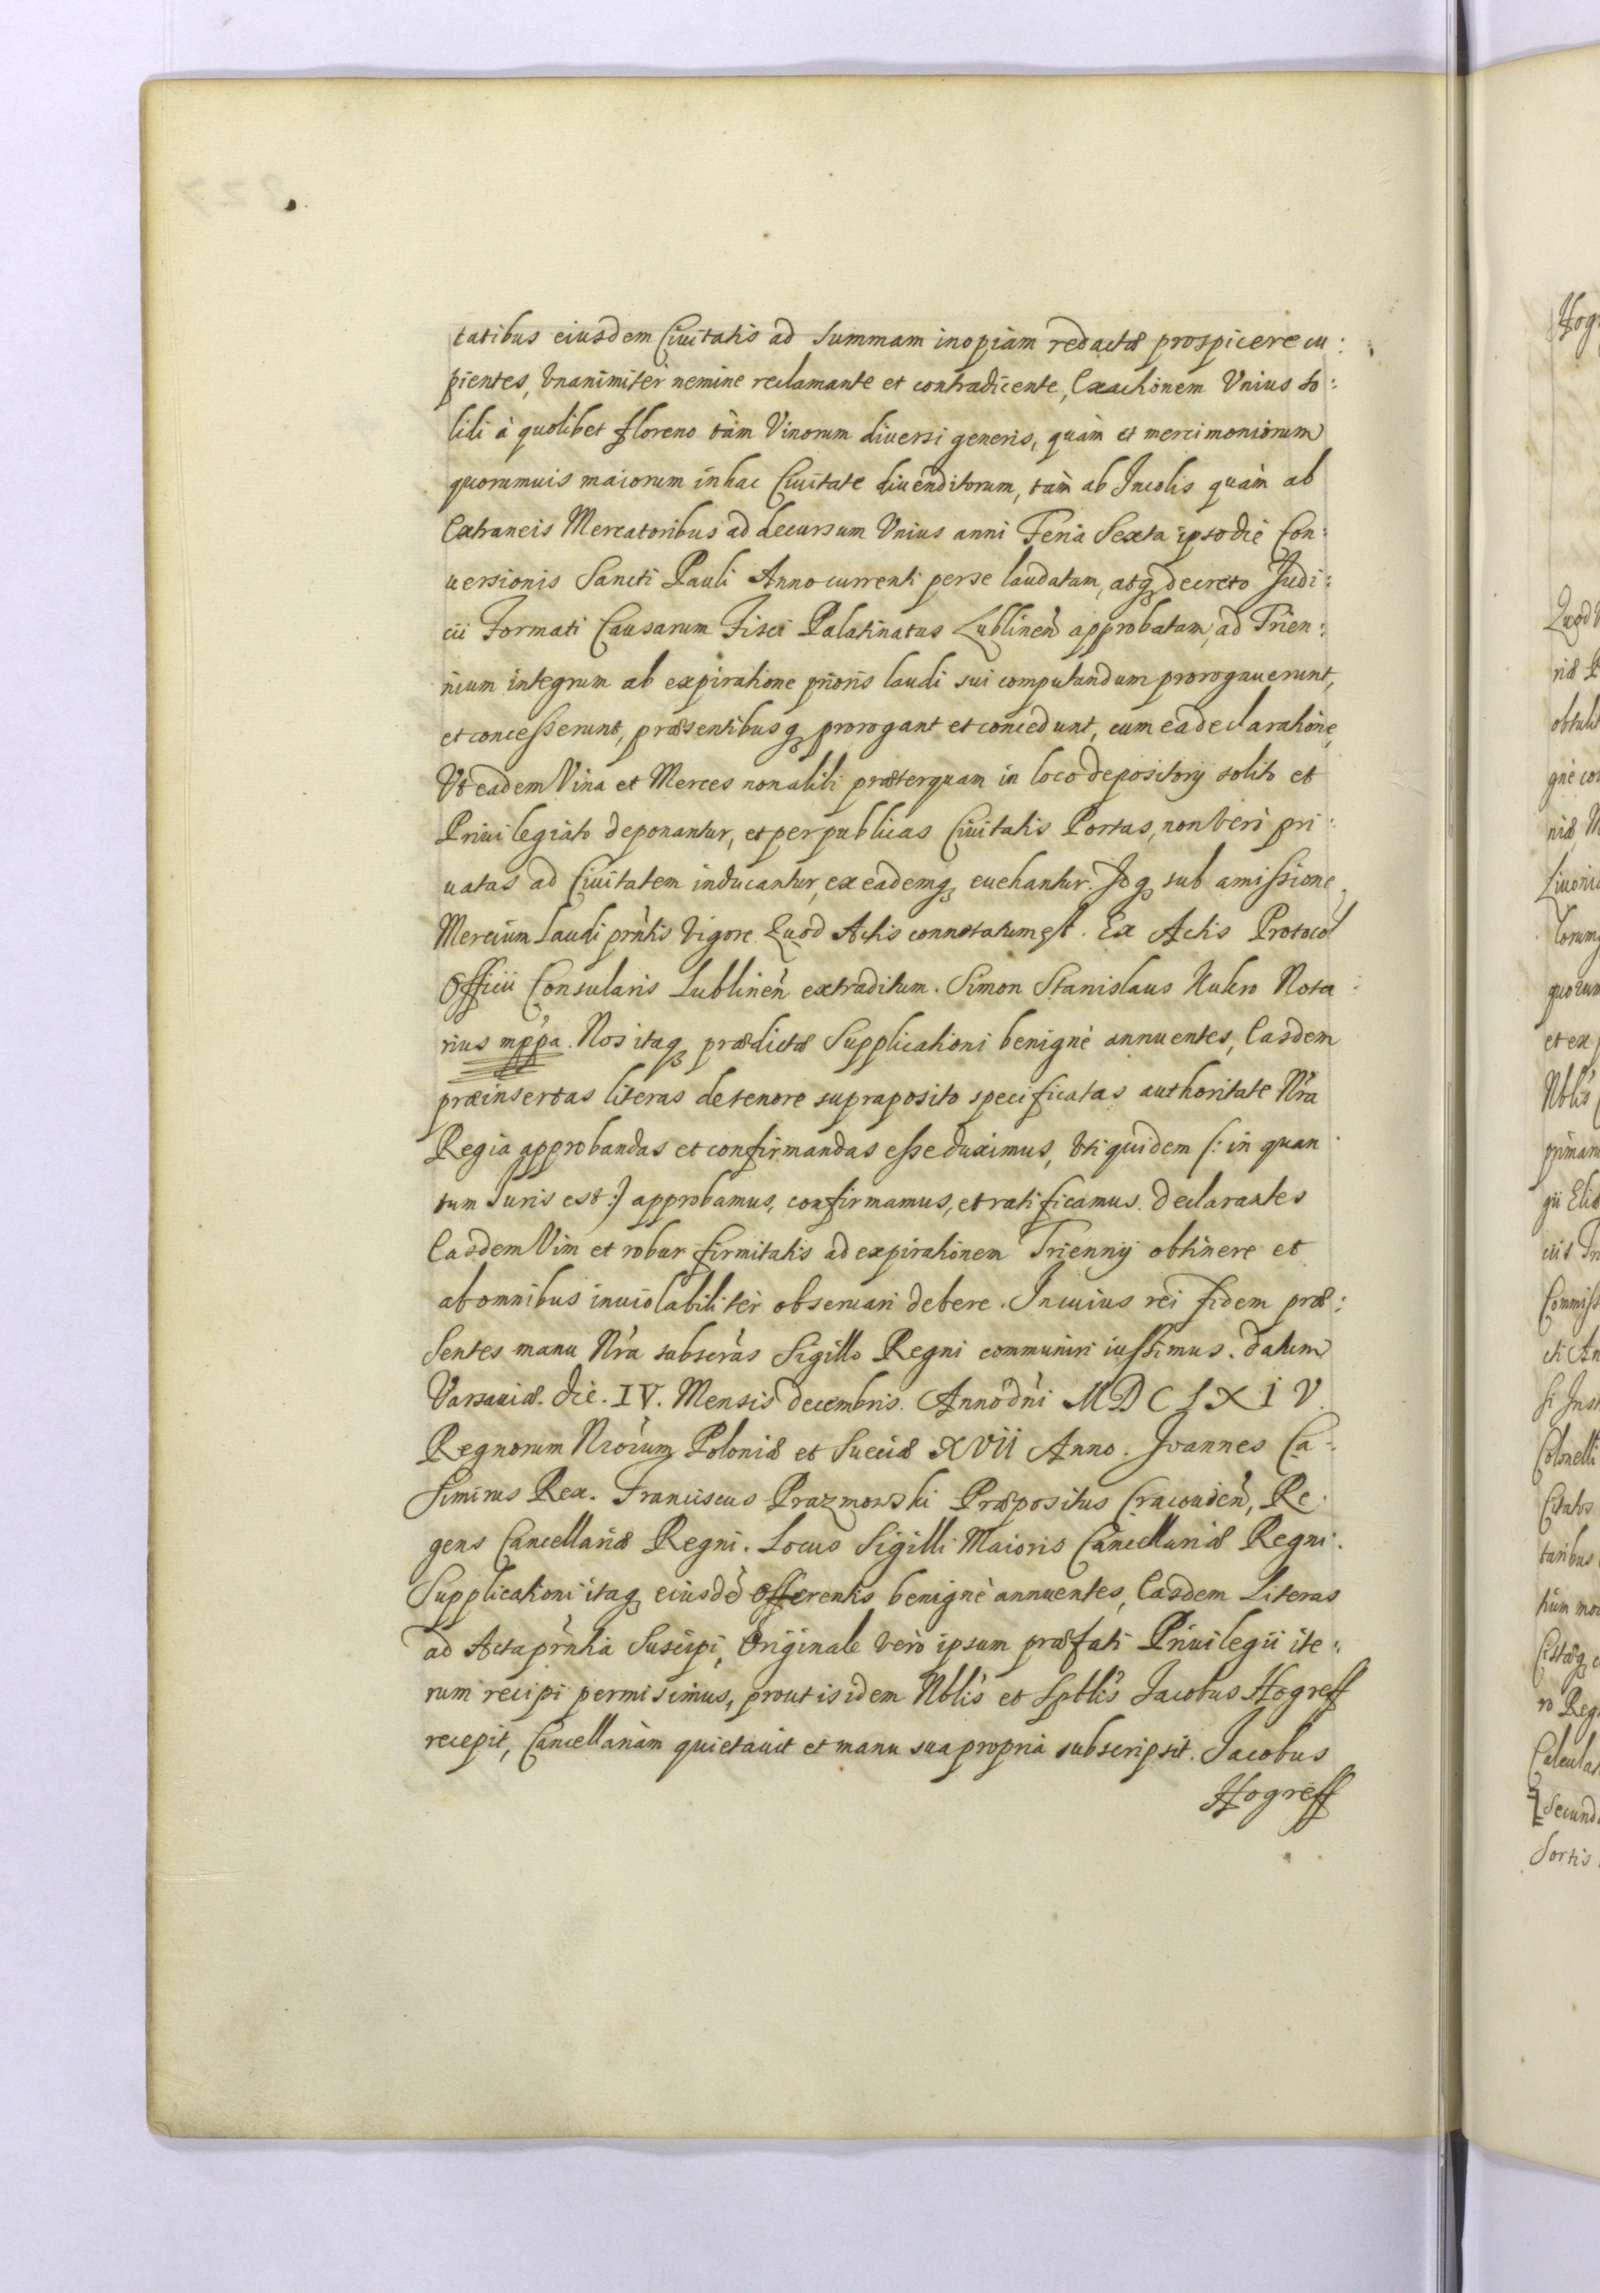 tatibus eiusdem Ciuitatis ad summam inopiam redactæ prospicere cu:
pientes, Vnanimitèr nemine reclamante et contradicente, Exactionem Vnius so:
lidi à quolibet floreno tàm Vinorum diuersi generis, quàm et mercimoniorum
quorumuis maiorum in hac Ciuitate diuenditorum, tàm ab Incolis quàm ab
Extraneis Mercatoribus ad decursum Vnius anni Feria Sexta ipso die Con:
uersionis Sancti Pauli Anno currenti per se laudatam, atq decreto Judi:
cii Formati Causarum Fisci Palatinatus Lublinen approbatam, ad Trien:
nium integrum ab expiratione prioris laudi sui computandum prorogauerunt,
et concesserunt, præsentibusq prorogant et concedunt, cum ea declaratione,
Vt eadem Vina et Merces non alibi præterquam in loco depositorij solito et
Priuilegiato deponantur, et per publicas Ciuitatis Portas, non Verò pri:
uatas ad Ciuitatem inducantur, ex eademq euehantur. Idq sub amissione
Mercium Laudi prntis Vigore. Quod Actis connotatum est. Ex Actis Protocol
Officii Consularis Lublinen extraditum. Simon Stanislaus Nota:
rius mppa. Nos itaq prædictæ Supplicationi benignè annuentes, Easdem
præinsertas literas de tenore supraposito specificatas authoritate Nra
Regia approbandas et confirmandas esse duximus, Vti quidem (: in quan
tum Juris est :) approbamus, confirmamus, et ratificamus. Declarantes
Easdem Vim et robur firmitatis ad expirationem Triennij obtinere et
ab omnibus inuiolabilitèr obseruari debere. In cuius rei fidem præ:
sentes manu Nra subscras Sigillo Regni communiri iussimus. Datum
Varsauiæ. Die. IV. Mensis Decembris. Anno Dni MDCLXIV.
Regnorum Nrorum Poloniæ et Sueciæ XVII Anno. Joannes Ca-
simirus Rex. Franciscus Prazmowski Præpositus Cracouien, Re:
gens Cancellariæ Regni. Locus Sigilli Maioris Cancellariæ Regni.
Supplicationi itaq eiusde Offerentis benignè annuentes, Easdem Literas
ad Acta prntia Suscipi, Originale Verò ipsum præfati Priuilegii ite:
rum recipi permisimus, prout is idem Nblis et Sptlis Jacobus Hogreff
recepit, Cancellariàm quietauit et manu sua propria subscripsit. Jacobus
Hogreff